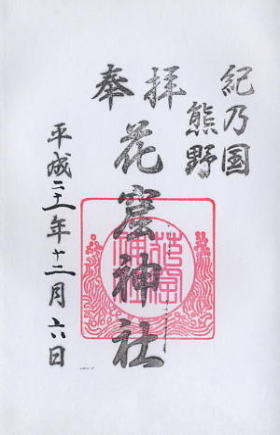 紀乃国
熊野
奉拝
花窟神社
平成二十一年十二月六日